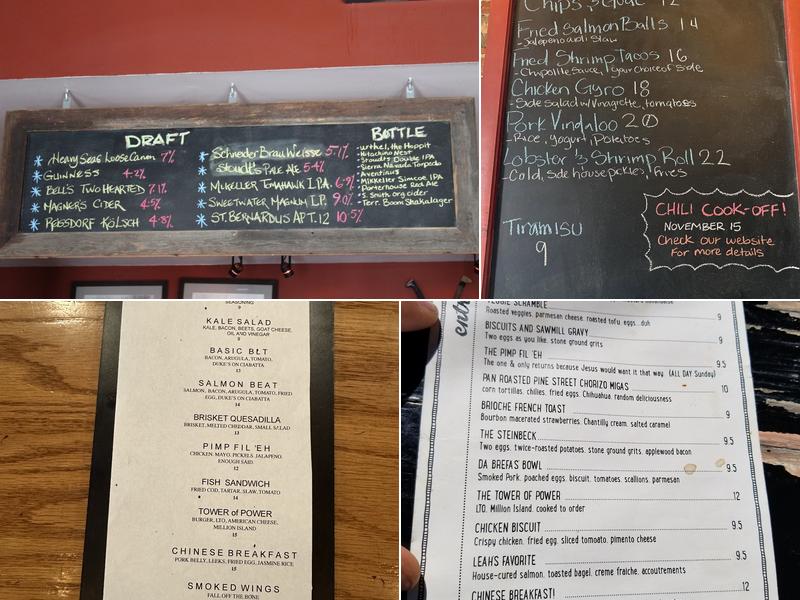 DRAFT
Heavy Seas Loose Canon 7%
GUINNESS 4.2%
BELL'S TWO HEARTED 7.1%
MAGNER'S CIDER 4.5%
REISSDORF KÖLSCH 4.8%
Schneider Brau Weisse 5.1%
Stoudt's PALE ALE 5.4%
MIKELLER TOMAHAWK I.P.A. 6.9%
SWEETWATER MAGNUM I.P. 9.0%
ST. BERNARDUS APT. 12 10.5%
BOTTLE
urthel, the Hoppit
Hitachino Nest
Stoudt's Double IPA
Sierra Nevada Torpedo
Aventinus
Mikkeller Simcoe IPA
Porterhouse Red Ale
J. Smith org cider
Terr. Boom Shakalager
Chips & Guac 12
Fried Salmon Balls 14
- Jalapeno aioli Slaw
Fried Shrimp Tacos 16
- Chipotle Sauce, your choice of side
Chicken Gyro 18
- Side salad w/ Vinagrette, tomatoes
Pork Vindaloo 20
- Rice, yogurt, Potatoes
Lobster & Shrimp Roll 22
- Cold, side house pckles, fries
Tiramisu
9
CHILI COOK-OFF!
NOVEMBER 15
Check our website
For more details
SEASONING
9
KALE SALAD
KALE, BACON, BEETS, GOAT CHEESE,
OIL AND VINEGAR
9
BASIC BLT
BACON, ARUGULA, TOMATO,
DUKE'S ON CIABATTA
13
SALMON BEAT
SALMON, BACON, ARUGULA, TOMATO, FRIED
EGG, DUKE'S ON CIABATTA
14
BRISKET QUESADILLA
BRISKET, MELTED CHEDDAR, SMALL SALAD
13
PIMP FIL 'EH
CHICKEN, MAYO, PICKELS, JALAPENO,
ENOUGH SAID.
12
FISH SANDWICH
FRIED COD, TARTAR, SLAW, TOMATO
14
TOWER of POWER
BURGER, LTO, AMERICAN CHEESE,
MILLION ISLAND
15
CHINESE BREAKFAST
PORK BELLY, LEEKS, FRIED EGG, JASMINE RICE
15
SMOKED WINGS
FALL OFF THE BONE
VEGGIE SCRAMBLE
Roasted veggies, parmesan cheese, roasted tofu, eggs...duh 9
BISCUITS AND SAWMILL GRAVY 9
Two eggs as you like, stone ground grits
THE PIMP FIL 'EH
The one & only returns because Jesus would want it that way (ALL DAY Sunday) 9.5
PAN ROASTED PINE STREET CHORIZO MIGAS 10
corn tortillas, chilies, fried eggs, Chihuahua, random deliciousness
BRIOCHE FRENCH TOAST 9
Bourbon macerated strawberries, Chantilly cream, salted caramel
THE STEINBECK 9.5
Two eggs, twice-roasted potatoes, stone ground grits, applewood bacon
DA BREFAS BOWL 9.5
Smoked Pork, poached eggs, biscuit, tomatoes, scallions, parmesan
THE TOWER OF POWER 12
LTO, Million Island, cooked to order
CHICKEN BISCUIT 9.5
Crispy chicken, fried egg, sliced tomoato, pimento cheese
LEAH'S FAVORITE 9.5
House-cured salmon, toasted bagel, creme fraiche, accoutrements
CHINESE BREAKFAST! 12